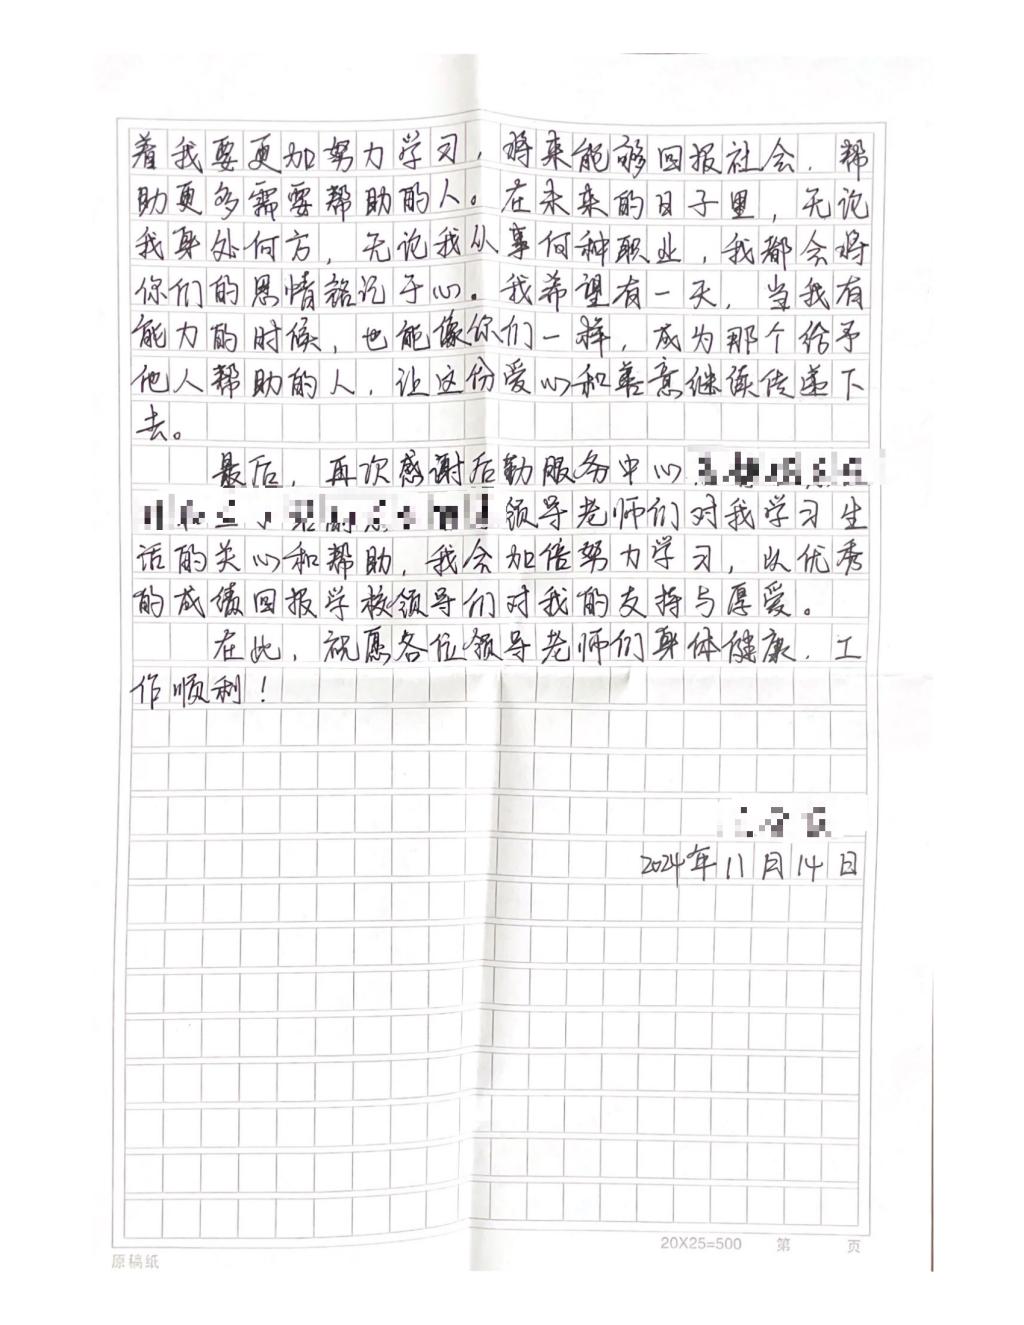 着我要更加努力学习，将来能够回报社会，帮
助更多需要帮助的人。在未来的日子里，无论
我身处何方，无论我从事何种职业，我都会将
你们的恩情铭记于心。我希望有一天，当我有
能力的时候，也能像你们一样，成为那个给予
他人帮助的人，让这份爱心和善意继续传递下
去。
最后，再次感谢后勤服务中心
领导老师们对我学习生
活的关心和帮助，我会加倍努力学习，以优秀
的成绩回报学校领导们对我的支持与厚爱。
在此，祝愿各位领导老师们身体健康，工
作顺利！
2024年11月14日
20X25=500 第 页
原稿纸